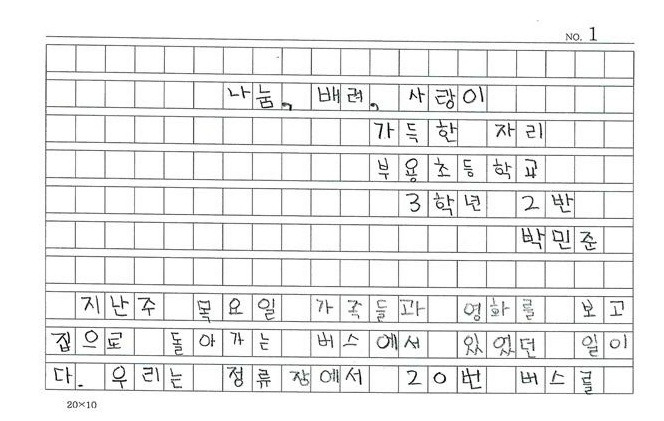 NO. 1
나눔, 배려, 사랑이
가득한 자리
부용초등학교
3학년 2반
박민준
지난주 목요일 가족들과 영화를 보고
집으로 돌아가는 버스에서 있었던 일이
다. 우리는 정류장에서 20번 버스를
20×10